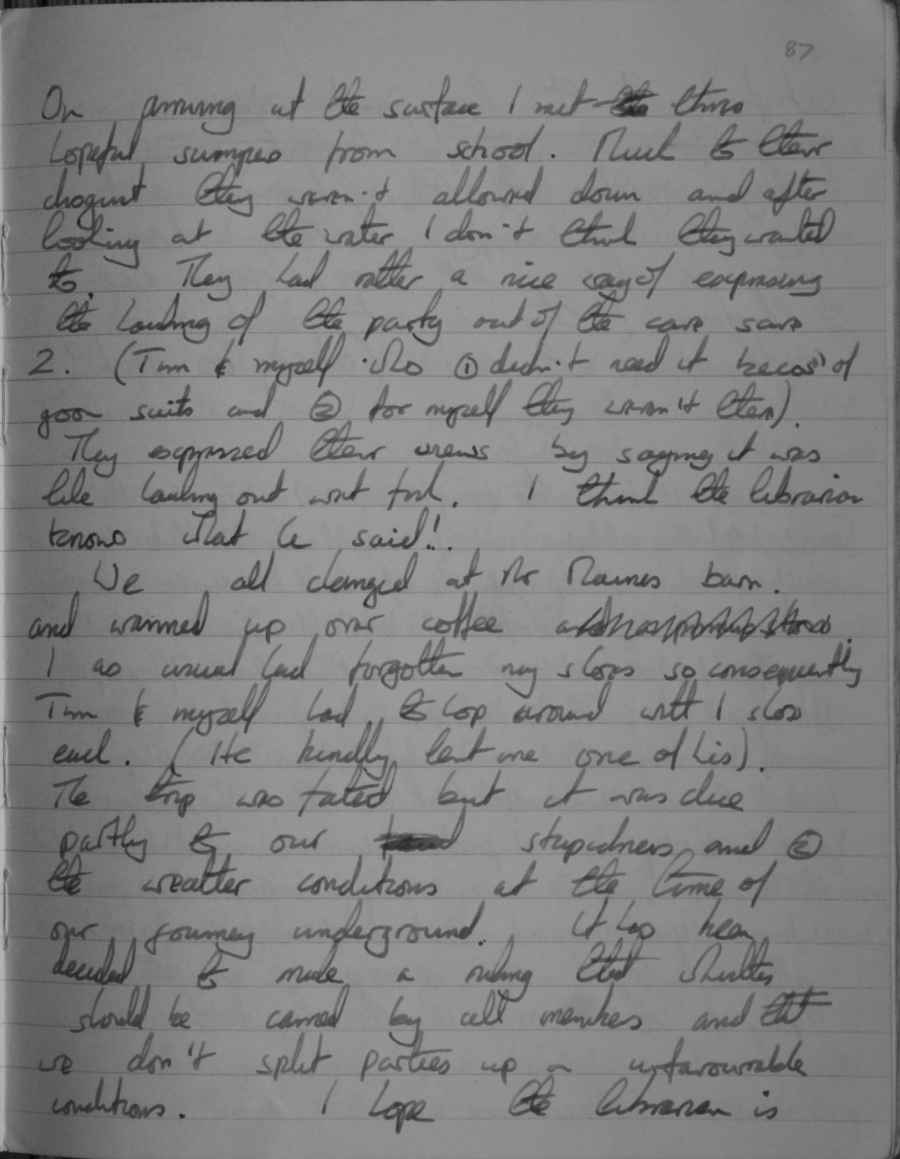 87
On arriving at the surface I met three
hopeful from school. Much to their
chagrint they weren't allowed down and after
looking at the water I don't think they wanted
to. They had rather a nice way of expressing
the hauling of the party out of the cave save
2. (Tim & myself who ① didn't need it of
goon suits and ② for myself they weren't there).
They expressed their views by saying it was
like hauling out wet fish. I think the librarian
knows what he said!!.
We all changed at Mr Maines barn.
and warmed up over coffee
I as usual had forgotten my shoes so consequently
Tim & myself had to hop around with 1 shoe
each. (He kindly lent me one of his).
The trip was fated but it was due
partly to our stupidness and ②
the weather conditions at the time of
our journey underground. It has been
decided to make a ruling that whistles
should be carried by all members and that
we don't split parties up in unfavourable
conditions. I hope the librarian is